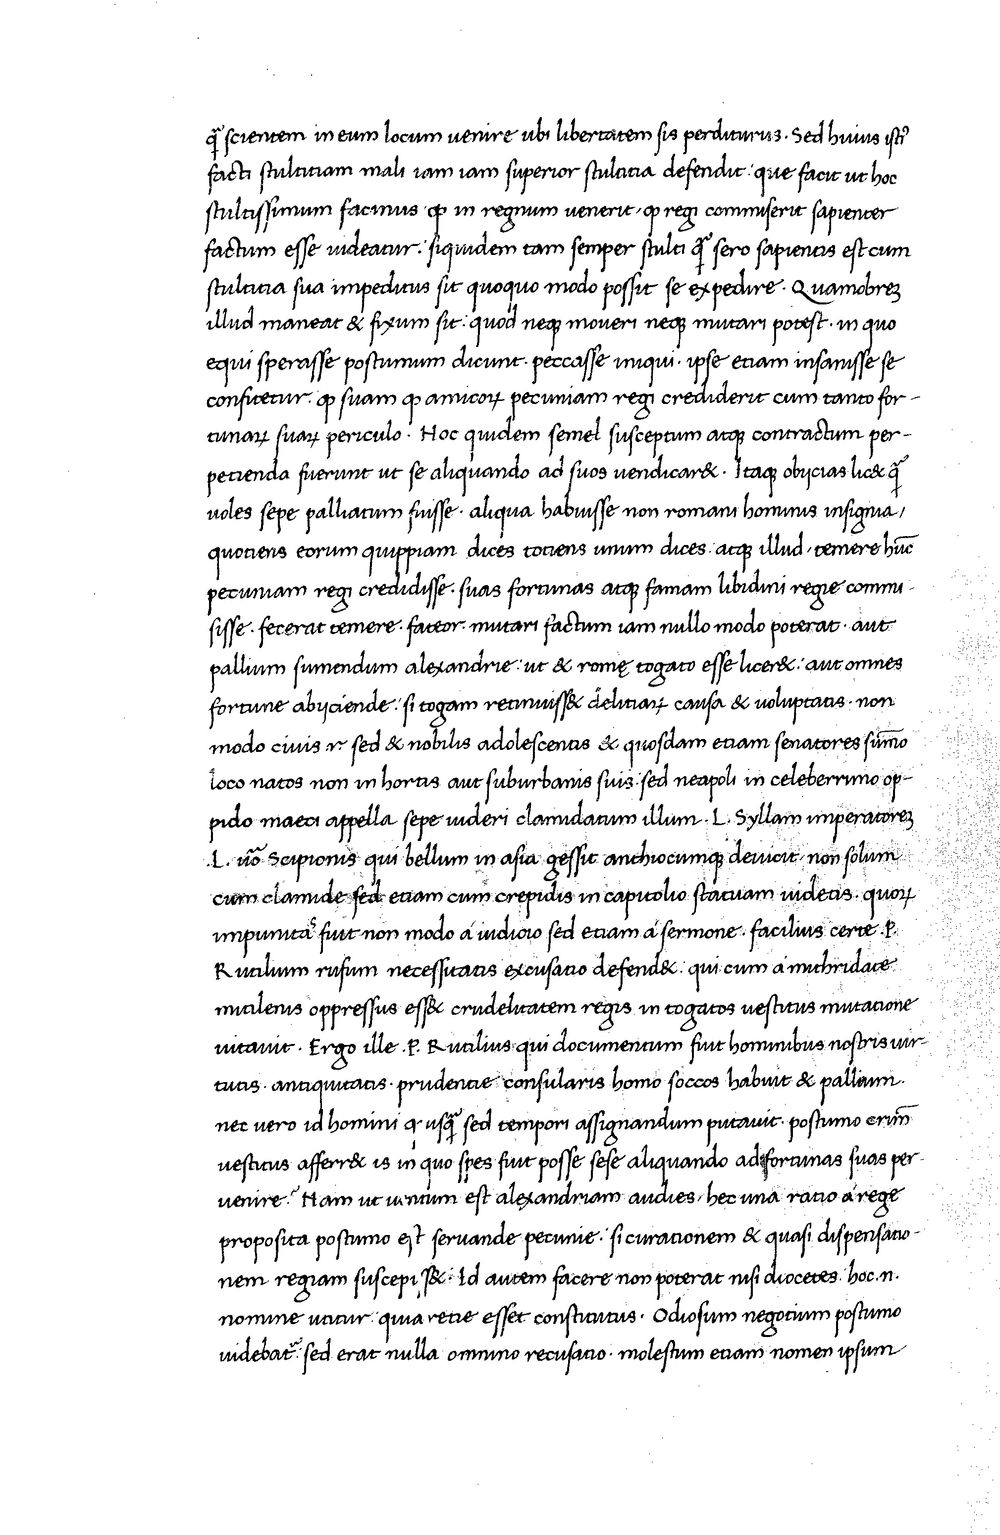 qᷓ scientem in eum locum uenire ubi libertatem sis perditurus. Sed huius isti᷒
facti stultitiam mali iam iam superior stultitia defendit: que facit ut hoc
stultissimum facinus ꝙ in regnum uenerit, ꝙ regi commiserit sapienter
factum esse uideatur: siquidem tam semper stulti qᷓ sero sapientis est cum
stultitia sua impeditus sit quoquo modo possit se expedire. Quamobreꝫ
illud maneat & fixum sit: quod neqꝫ moueri neqꝫ mutari potest. in quo
equi sperasse postumum dicunt. peccasse iniqui. ipse etiam insanisse se
confitetur. ꝙ suam ꝙ amicoꝝ pecuniam regi crediderit cum tanto for-
tunaꝝ suaꝝ periculo. Hoc quidem semel susceptum atqꝫ contractum per-
petienda fuerunt ut se aliquando ad suos uendicar&. Itaqꝫ obijcias lic& qᷓ
uoles sepe palliatum fuisse. aliqua habuisse non romani hominis insignia,
quotiens eorum quippiam dices totiens unum dices. atqꝫ illud, temere hūc
pecuniam regi credidisse. suas fortunas atqꝫ famam libidini regie commi-
sisse. fecerat temere. fateor. mutari factum iam nullo modo poterat. aut
pallium sumendum alexandrie: ut & romę togato esse licer&: aut omnes
fortune abijciende: si togam retinuiss& delitiaꝝ causa & uoluptatis. non
modo ciuis r sed & nobilis adolescentis & quosdam etiam senatores sūmo
loco natos non in hortis aut suburbanis suis. sed neapoli in celeberrimo op-
pido maeci appella sepe uideri clamidatum illum. L. Syllam imperatoreꝫ
L. uō Scipionis qui bellum in asia gessit anthiocumqꝫ deuicit, non solum
cum clamide sed etiam cum crepidis in capitolio statuam uidetis. quoꝝ
impunitaˢ fuit non modo á iudicio sed etiam á sermone. facilius certe .P.
Rutilium rufum necessitatis excusatio defend&. qui cum a mithridate
mitilenis oppressus ess& crudelitatem regis in togatos uestitus mutatione
uitauit. Ergo ille .P. Rutilius qui documentum fuit hominibus nostris uir-
tutis. antiquitatis. prudentie consularis homo soccos habuit & pallium.
nec uero id homini qͥusqᷓ sed tempori assignandum putauit. postumo crim̄
uestitus afferr& is in quo spes fuit posse sese aliquando ad fortunas suas per-
uenire? Nam ut uentum est alexandriam audies, hec una ratio á rege
proposita postumo est seruande pecunie: si curationem & quasi dispensatio-
nem regiam suscepiss&: Id autem facere non poterat nisi diocetes. hoc .n.
nomine utitur quia retie esset constitutus. Odiosum negotium postumo
uidebatᷣ: sed erat nulla omnino recusatio. molestum etiam nomen ipsum